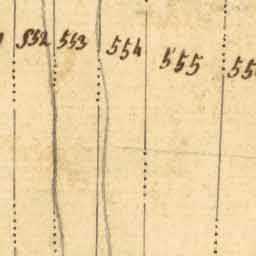 552 553 554 555